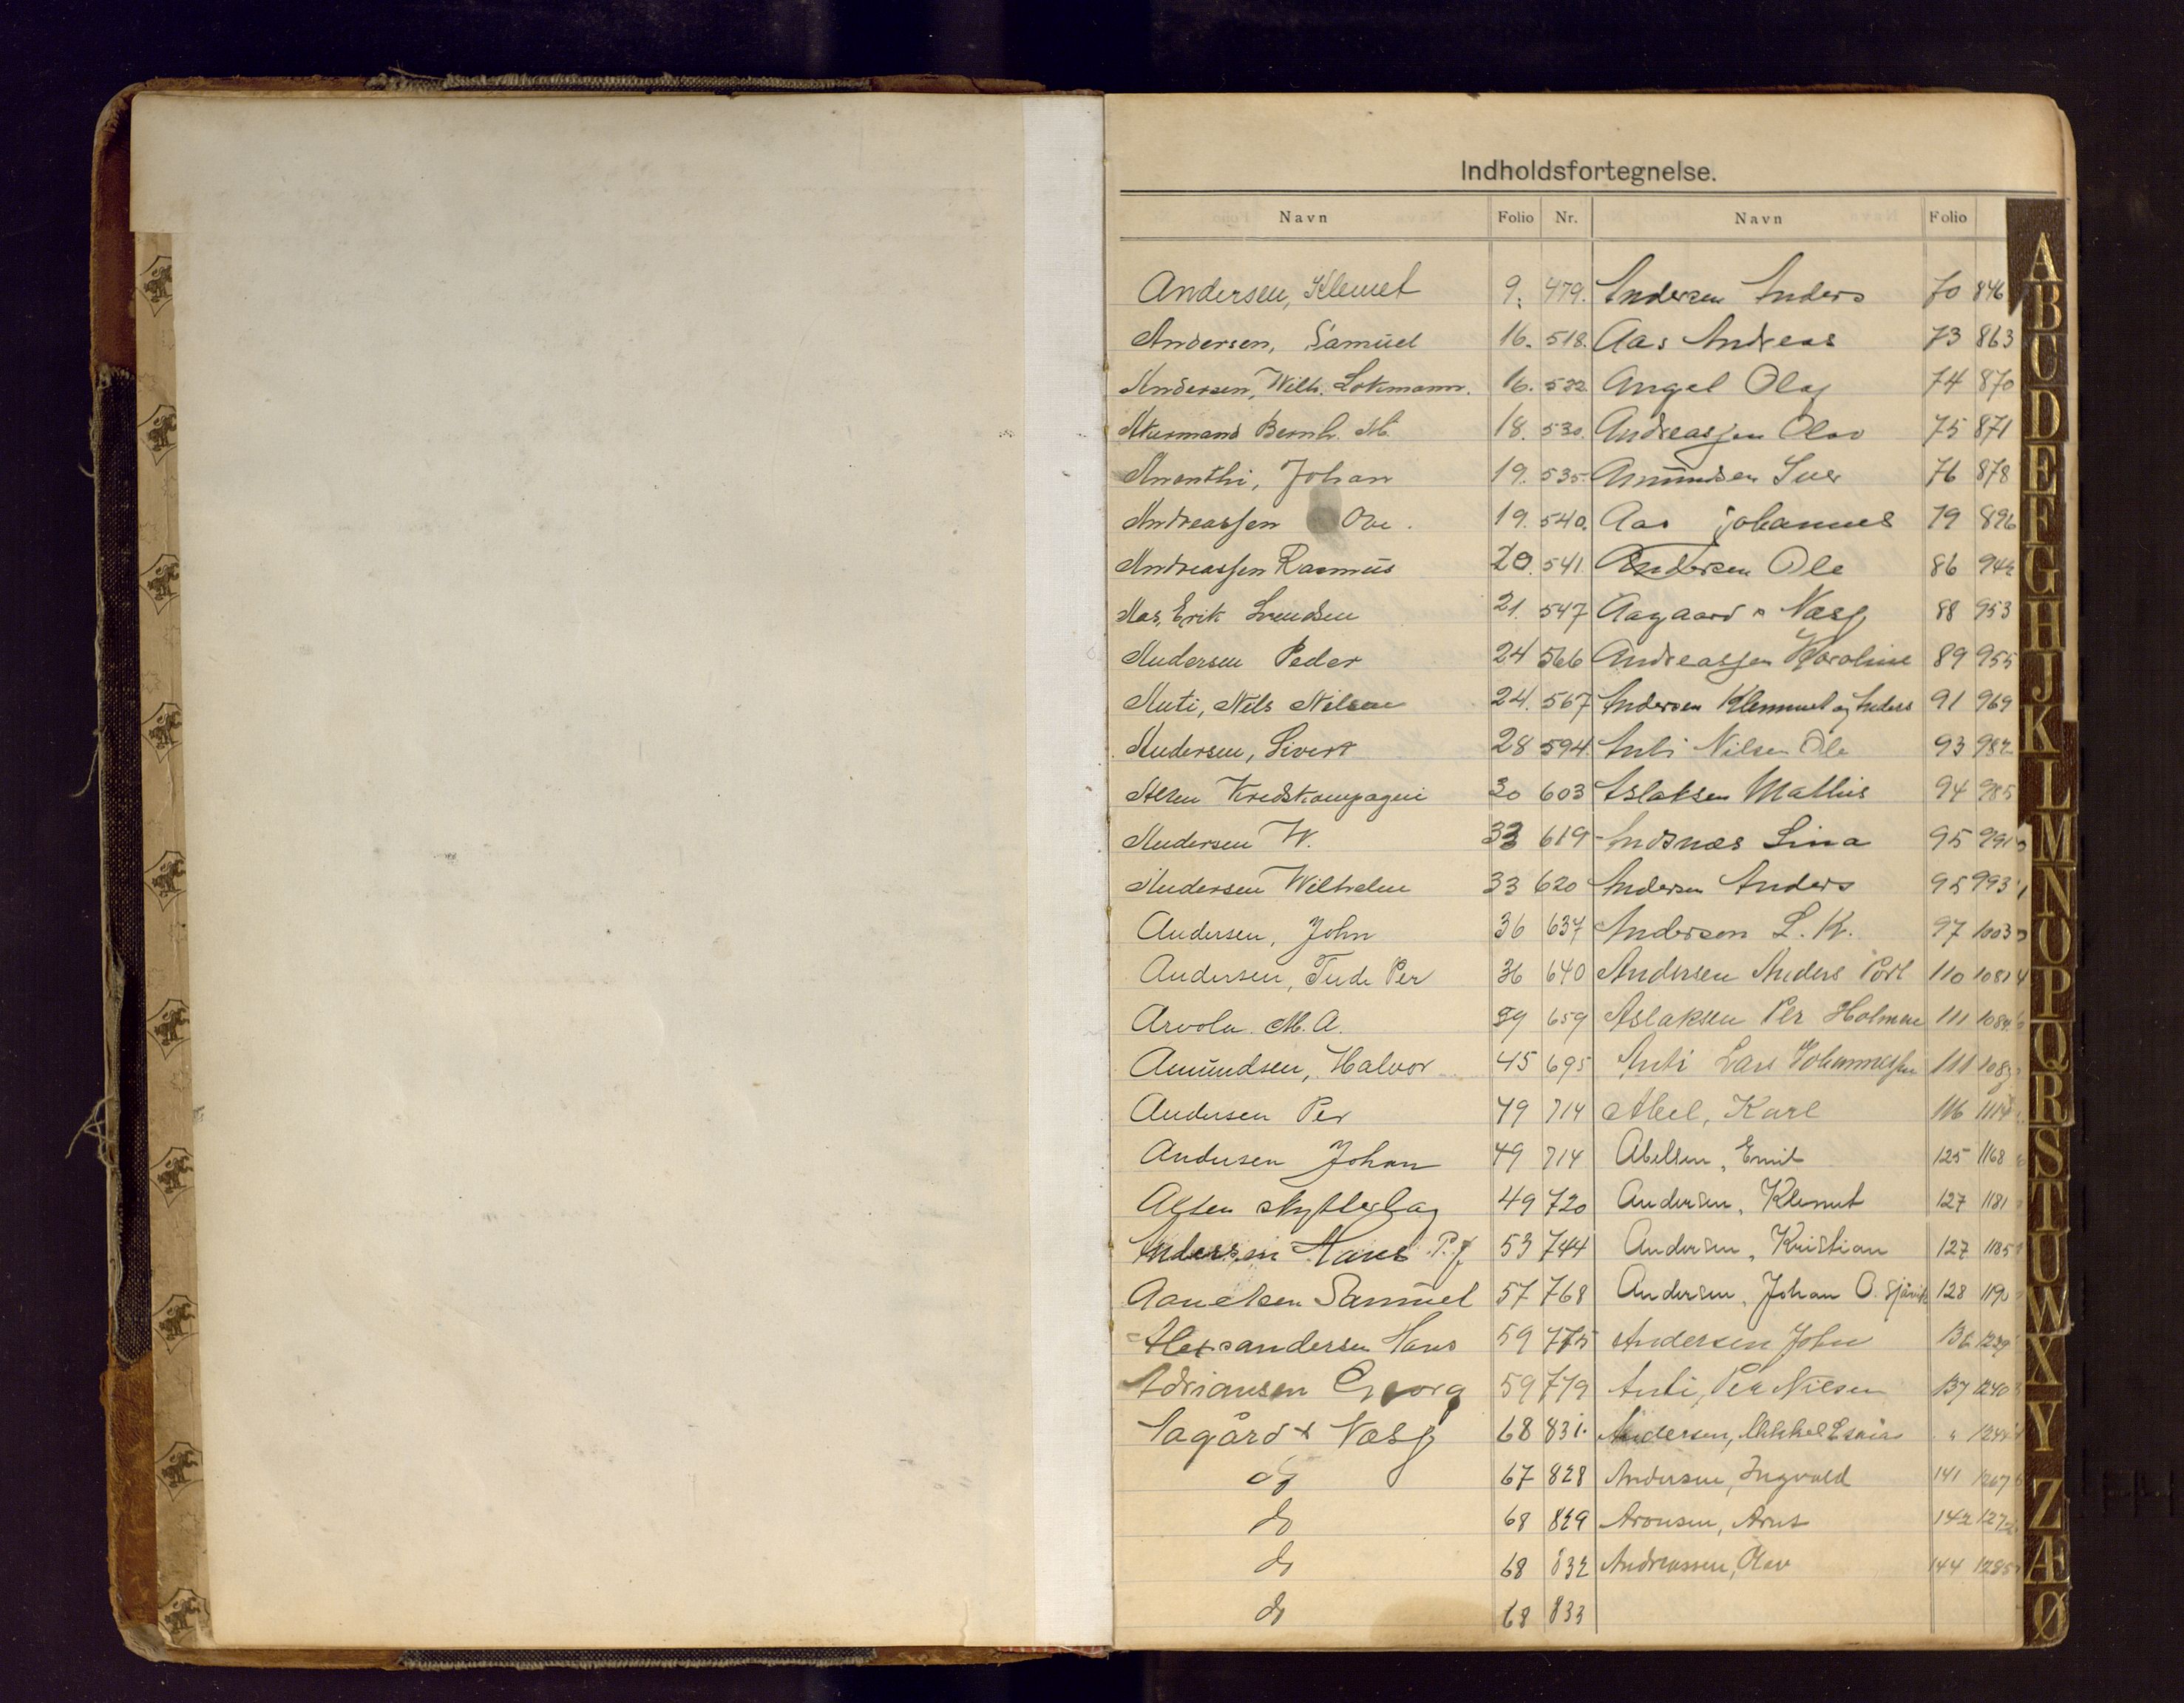 Indholdsfortegnelse.
Navn Folio Nr. Navn Folio
Andersen, Klemet 9. 479. Andersen Anders 70 846
Andersen, Samuel 16. 518. Aas Andreas 73 863
Andersen, Wilh. Lokmann. 16. 522. Angel Olaf 74 870
Akermand Bernh. M. 18. 530. Andreassen Olav 75 871
Ananthi, Johan 19. 535. Amundsen Iver 76 878
Andreassen Ove. 19. 540. Aas johannes 79 896
Andreassen Rasmus 20. 541. Andersen Ole 86 942
Aas, Erik Svendsen 21. 547 Aagaard & Næss 88 953
Andersen Peder 24 566 Andreassen Karoline 89 955
Anti, Nils Nilsen 24. 567 Andersen Klemmet og Anders 91 969
Andersen, Sivert 28 594. Anti Nilsen Ole 93 982
Alten Kredskompagni 30 603 Aslaksen Mathis 94 985
Andersen W. 33 619 Andsnæs Lina 95 991
Andersen Wilhelm 33 620 Andersen Anders 95 993
Andersen, John 36 637 Anderson L. K. 97 1003
Andersen, Tude Per 36 640 Andersen Anders Port 110 1081
Arvola M. A. 39 659 Aslaksen Per Holmen 111 1084
Amundsen, Halvor 45 695 Anti Lars Johannessen 111 108
Andersen Per 49 714 Abel, Karl 116 1114
Andersen Johan 49 714 Abelsen, Emil 125 1168
Alten skytterlag 49 720 Andersen, Klemet 127 1181
Andersen Hans P. J. 53 744 Andersen, Kristian 127 1185
Aaneksen Samuel 57 768 Andersen, Johan O. 128 1190
Alexsandersen Hans 59 775 Andersen John 136 1239
Adriansen Georg 59 779 Anti, Per Nilsen 137 1240
Aagård & Næss 68 831. Andersen, Mikkel Esaias " 1244
do 67 828 Andersen, Ingvald 141 1267
do 68 829 Aronsen, Arnt 142 1272
do 68 832 Andreassen, Olav 144 1285
do 68 833
A
B
C
D
E
F
G
H
J
K
L
M
N
O
P
Q
R
S
T
U
W
X
Y
Z
Æ
Ø